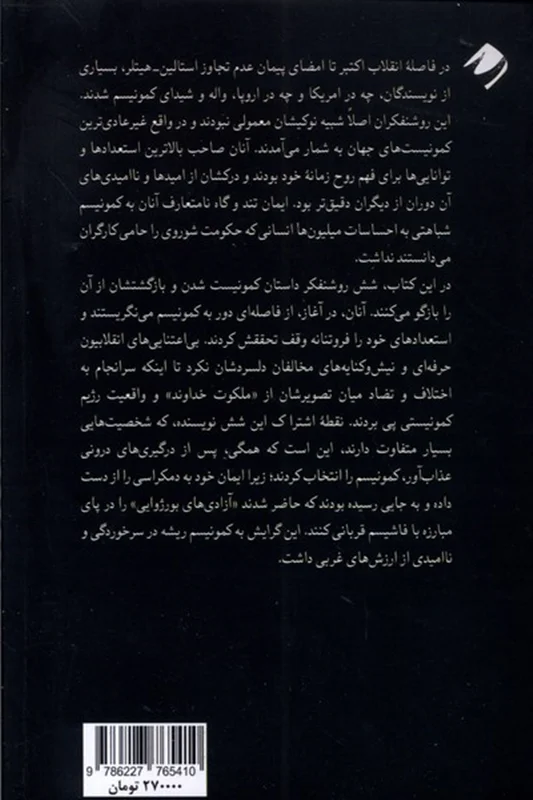 در فاصلهٔ انقلاب اکتبر تا امضای پیمان عدم تجاوز استالین-هیتلر، بسیاری
از نویسندگان، چه در امریکا و چه در اروپا، واله و شیدای کمونیسم شدند.
این روشنفکران اصلاً شبیه نوکیشان معمولی نبودند و در واقع غیرعادی‌ترین
کمونیست‌های جهان به شمار می‌آمدند. آنان صاحب بالاترین استعدادها و
توانایی‌ها برای فهم روح زمانهٔ خود بودند و درکشان از امیدها و ناامیدی‌های
آن دوران از دیگران دقیق‌تر بود. ایمان تند و گاه نامتعارف آنان به کمونیسم
شباهتی به احساسات میلیون‌ها انسانی که حکومت شوروی را حامی کارگران
می‌دانستند نداشت.
در این کتاب، شش روشنفکر داستان کمونیست شدن و بازگشتشان از آن
را بازگو می‌کنند. آنان، در آغاز، از فاصله‌ای دور به کمونیسم می‌نگریستند و
استعدادهای خود را فروتنانه وقف تحققش کردند. بی‌اعتنایی‌های انقلابیون
حرفه‌ای و نیش‌وکنایه‌های مخالفان دلسردشان نکرد تا اینکه سرانجام به
اختلاف و تضاد میان تصویرشان از «ملکوت خداوند» و واقعیت رژیم
کمونیستی پی بردند. نقطهٔ اشتراک این شش نویسنده، که شخصیت‌هایی
بسیار متفاوت دارند، این است که همگی پس از درگیری‌های درونی
عذاب‌آور، کمونیسم را انتخاب کردند؛ زیرا ایمان خود به دمکراسی را از دست
داده و به جایی رسیده بودند که حاضر شدند «آزادی‌های بورژوایی» را در پای
مبارزه با فاشیسم قربانی کنند. این گرایش به کمونیسم ریشه در سرخوردگی و
ناامیدی از ارزش‌های غربی داشت.
9 786227 765410
۲۷۰۰۰۰ تومان